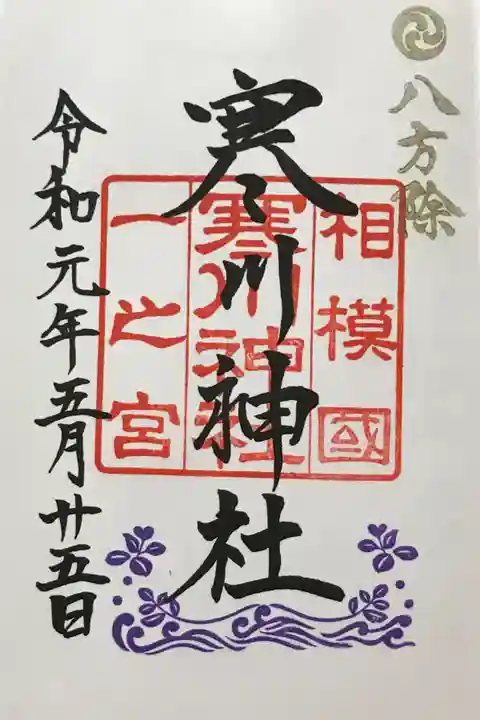 八方除
寒川神社
相模國
寒川神社
一之宮
令和元年五月廿五日